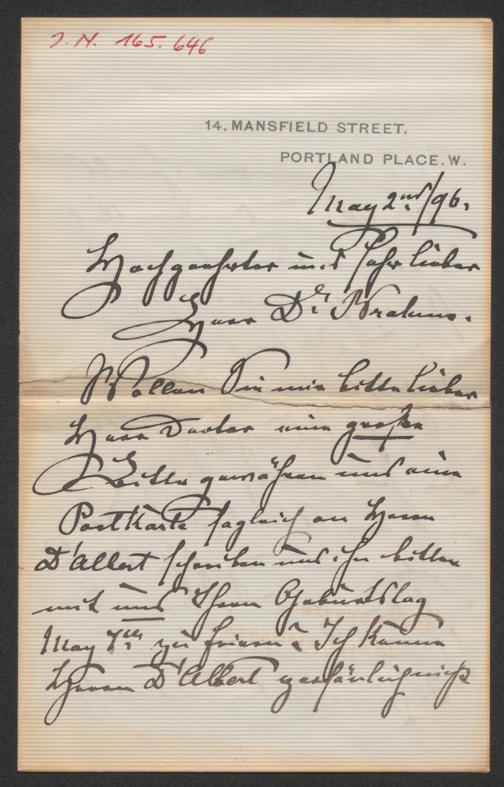 J.N. 165.646
14, MANSFIELD STREET.
PORTLAND PLACE. W.
May 2nd/96.
Hochgeehrter und sehr lieber
Herr Dr. Brahms.
Wollen Sie mir bitte lieber
Herr Doctor eine große
Bitte gewähren und eine
Postkarte sogleich an Herrn
D'Albert schreiben und ihn bitten
mit uns Ihren Geburtstag
May 7th zu feiern? Ich kenne
Herrn D'Albert persönlich nicht